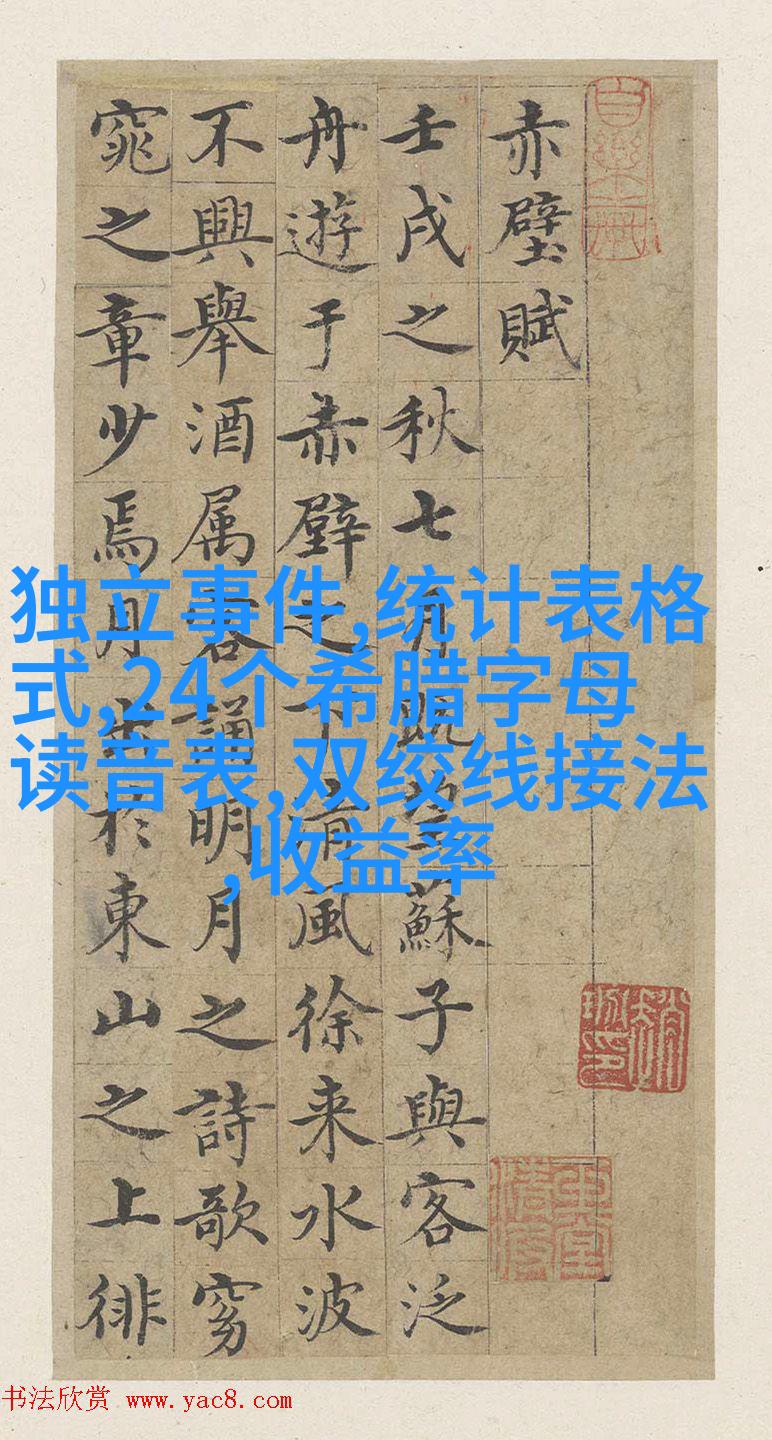 赤壁賦
壬戌之秋七月既望蘇子與客泛
舟遊于赤壁之下清風徐来水波
不興舉酒属客誦明月之詩歌窈
窕之章少焉月出於東山之上徘
独立事件,统计表格
式,24个希腊字母
读音表,双绞线接法
,收益率
书法欣赏 www.yac8.com